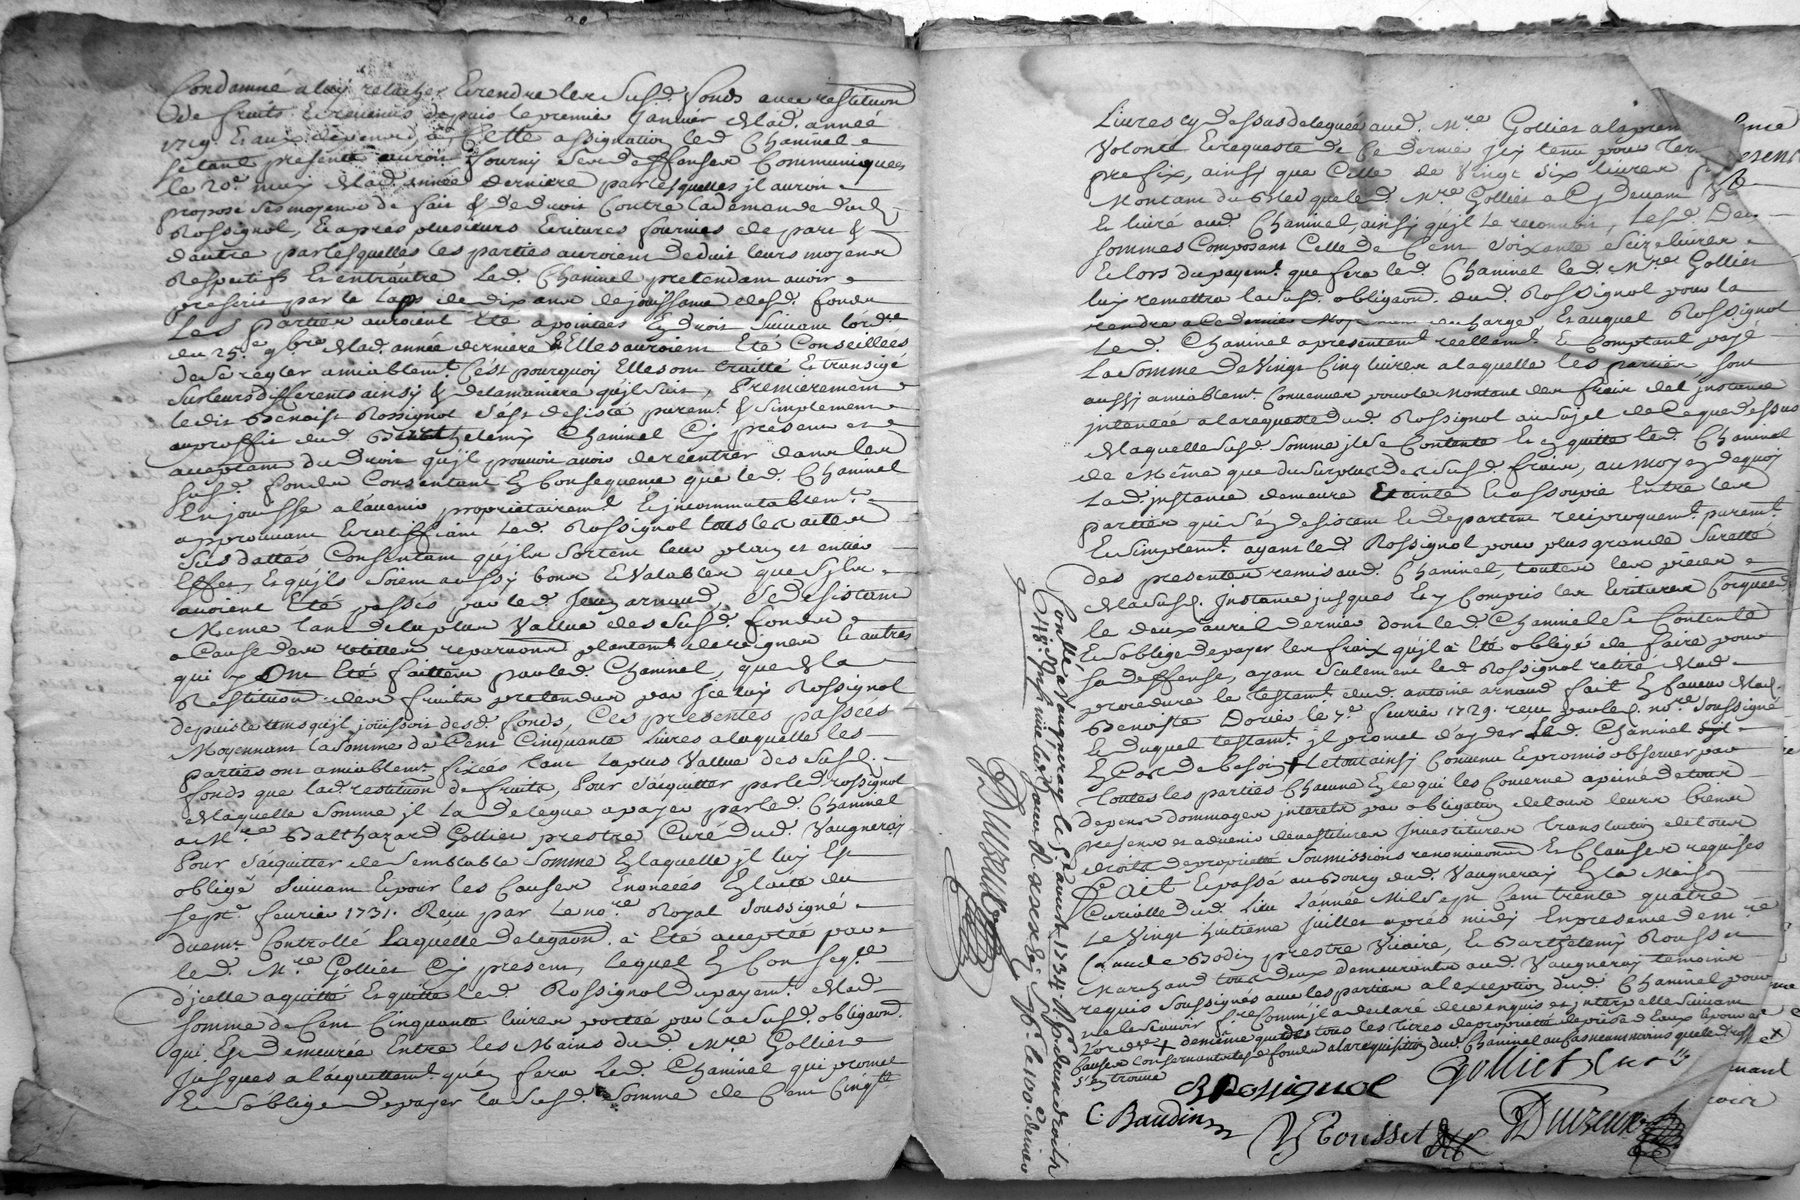 Condamné a luy relacher Et rendre les Susd. fonds avec restitution
de fruits Et revenus depuis le premier Janvier Mad. année
1729. Et aux depens, a Cette assignation led. Chaninel
s'étant presenté auroit fourny ses deffenses Communiquées
le 20e. may Mad. année derniere par lesquelles jl auroit
proposé ses moyens de fait & de droit Contre la demande dud.
Rossignol, Et après plusieurs Ecritures fournies de part &
d'autre par lesquelles les parties auroient deduit leurs moyens
Respectifs Et entrautre led. Chaninel pretendant avoir
prescrit par le Laps de dix ans de jouissance desd. fonds
Les parties auroient Eté apointées En droit Suivant lordre
du 25e. 9bre Mad. année derniere Elles auroient Eté Conseillées
de Se regler amiablemt. C'est pourquoy Elles ont traitté Et transigé
Sur leurs differents ainsy & de la maniere qu'il Suit, Premierement
ledit Benoist Rossignol s'est desisté puremt. & Simplement
au proffit dud. Barthelemy Chaninel Cy present et
acceptant du droit qu'jl pouvoit avoir de rentrer dans les
susd. fonds Consentant En Consequence que led. Chaninel
En jouisse a l'avenir proprietairemt. & jncommutablemt.
approuvant Et ratiffiant led. Rossignol tous les actes
Sus dattés Consentant qu'jls Sortent leur plein et entier
Effet, Et qu'jls Soient aussy bons & Valables que S'jls
avoient Eté passés par led. Jean arnaud, Se desistant
Meme tant de la plus Vallue des Susd. fonds
a Cause des reparations plantemt. de vignes & autres
qui y Ont Eté faittes par led. Chaninel, que de la
Restitution des fruits pretendus par jceluy Rossignol
depuis le tems qu'jl jouissoit desd. fonds, Ces presentes passées
Moyennant la Somme de Cent Cinquante livres a laquelle les
parties ont amiablemt. fixées tant la plus Vallue des Susd.
fonds que lad. restitution de fruits, Pour s'aquitter par led. rossignol
de laquelle Somme jl la delegue a payer par led. Chaninel
a Mre. Balthazard Golliet prestre Curé dud. Vaugneray
Pour s'aquitter de Semblable Somme En laquelle jl luy Est
obligé Suivant & pour les Causes Enoncées En l'acte du
Sept. fevrier 1731. Reçu par Le nore. Royal Soussigné
duemt. Controllé Laquelle delegaon. a Eté acceptée par
led. Mre Golliet Cy present, lequel En Conseqce
d'jcelle a quitté Et quitte led. Rossignol du payemt. Mad.
Somme de Cent Cinquante livres portée par la Susd. obligaon.
qui Est demeurée Entre les Mains dud. Mre Golliet
jusques a l'aquittemt. qu'en fera led. Chaninel qui promet
Et s'oblige de payer la Susd. Somme de Cent Cinqte
Livres Cy dessus deleguée aud. Mre Golliet a la premiere
Volonté & requeste de Ce dernier jcy tenu pour Terme
prefix, ainsy que Celle de Vingt Six livres
Montant du Bled que led. Mre Golliet a Cy devant
Et livré aud. Chaninel, ainsy qu'jl le reconnoit, lesd. Deux
sommes Composant Celle de Cent Soixante Seize livres
Et lors du payemt. que fera led. Chaninel led. Mre Golliet
luy remettra la Susd. obligaon. dud. Rossignol pour la
rendre a Ce dernier decharge, Et auquel Rossignol
Led. Chaninel a presentemt. reellemt. & Comptant payé
La Somme de Vingt Cinq livres a laquelle les parties, sont
aussy amiablemt. Convenues pour le Montant des frais del jnstance
jntentée a la requeste dud. Rossignol au Sujet de Ce que dessus
de laquelle Susd. Somme jl se Contente Et En quitte led. Chaninel
de Même que du Surplus des Susd. frais, au moyen de quoy
La d. jnstance demeure Eteinte Et assoupie Entre les
parties qui s'En desistent & departent reciproquemt. puremt.
Et Simplemt. ayant led. Rossignol pour plus grande Suretté
des presentes remis aud. Chaninel, toutes les pieces
de la Susd. Instance jusques Et y Compris les Ecritures
le deux avril dernier dont led. Chaninel Se Contente
Et s'oblige de payer les fraix qu'jl a Eté obligé de faire pour
sa deffense, ayant Seulement led. Rossignol retiré de lad.
procedure le Testamt. dud. antoine arnaud fait En faveur de lad.
Benoiste Dorier le 7e. fevrier 1729. recu par led. nore. Soussigné
Et duquel testamt. jl promet d'ayder led. Chaninel
En Cas de besoin + Le tout ainsy Convenu & promis observer par
toutes les parties Chacune En Ce qui les Concerne a peine de tous
depens dommages jnterets par obligation de tous leurs biens
presens et advenir devestitures Investitures translation de tous
droits de proprietté Soumissions renonciaons. & Clauses requises
Fait Et passé au Bourg dud. Vaugneray En la Maison
Curialle dud. Lieu L'année Mil Sept Cent trente quatre
Le Vingt huitieme Juillet après midy En presence de mre
Claude Bodin prestre Vicaire, & Barthelemy Rousset
Marchand tous deux demeurants aud. Vaugneray temoins
requis Soussignés avec les parties a l'exception dud. Chaninel pour
ne le Scavoir fre. Comm'jl a declaré de ce enquis et jnterpellé Suivant
l'ordce + de même que de tous les titres de proprietté
Causes Concernant les d. fonds a la requisition dud. Chaninel au Cas neanmoins
s'en trouve
BRossignol
Golliet Curé
C. Baudin
B Rousset
Duizeux
Con.lle a Vaugneray le 5e. aoust 1734.